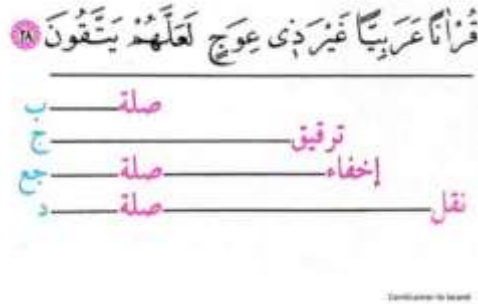 قُرْاٰنًا عَرَبِيًّا غَيْرَ ذِى عِوَجٍ لَعَلَّهُمْ يَتَّقُونَ ٢٨
صلة ب
ترقيق ج
إخفاء صلة جع
نقل صلة د